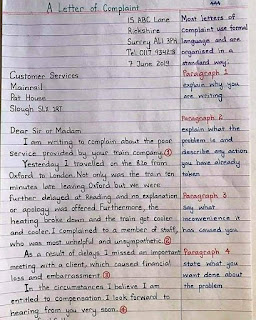 A Letter of Complaint
15 ABC Lane
Rickshire
Surrey AL1 3PH
Tel 0117 934218
7 June 2019
Customer Services
Mainrail
Pat House
Slough SL4 3RT
Dear Sir or Madam
I am writing to complain about the poor
service provided by your train company. ①
Yesterday I travelled on the 820 from
Oxford to London. Not only was the train ten
minutes late leaving Oxford but we were
further delayed at Reading and no explanation
or apology was offered. Furthermore, the
heating broke down and the train got cooler
and cooler. I complained to a member of staff,
who was most unhelpful and unsympathetic. ②
As a result of delays I missed an important
meeting with a client, which caused financial
loss and embarrassment. ③
In the circumstances I believe I am
entitled to compensation. I look forward to
hearing from you very soon. ④
Most letters of
complaint use formal
language and are
organised in a
standard way.
Paragraph 1
explain why you
are writing
Paragraph 2
explain what the
problem is and
describe any action
you have already
taken
Paragraph 3
say what
inconvenience it
has caused you
Paragraph 4
state what you
want done about
the problem